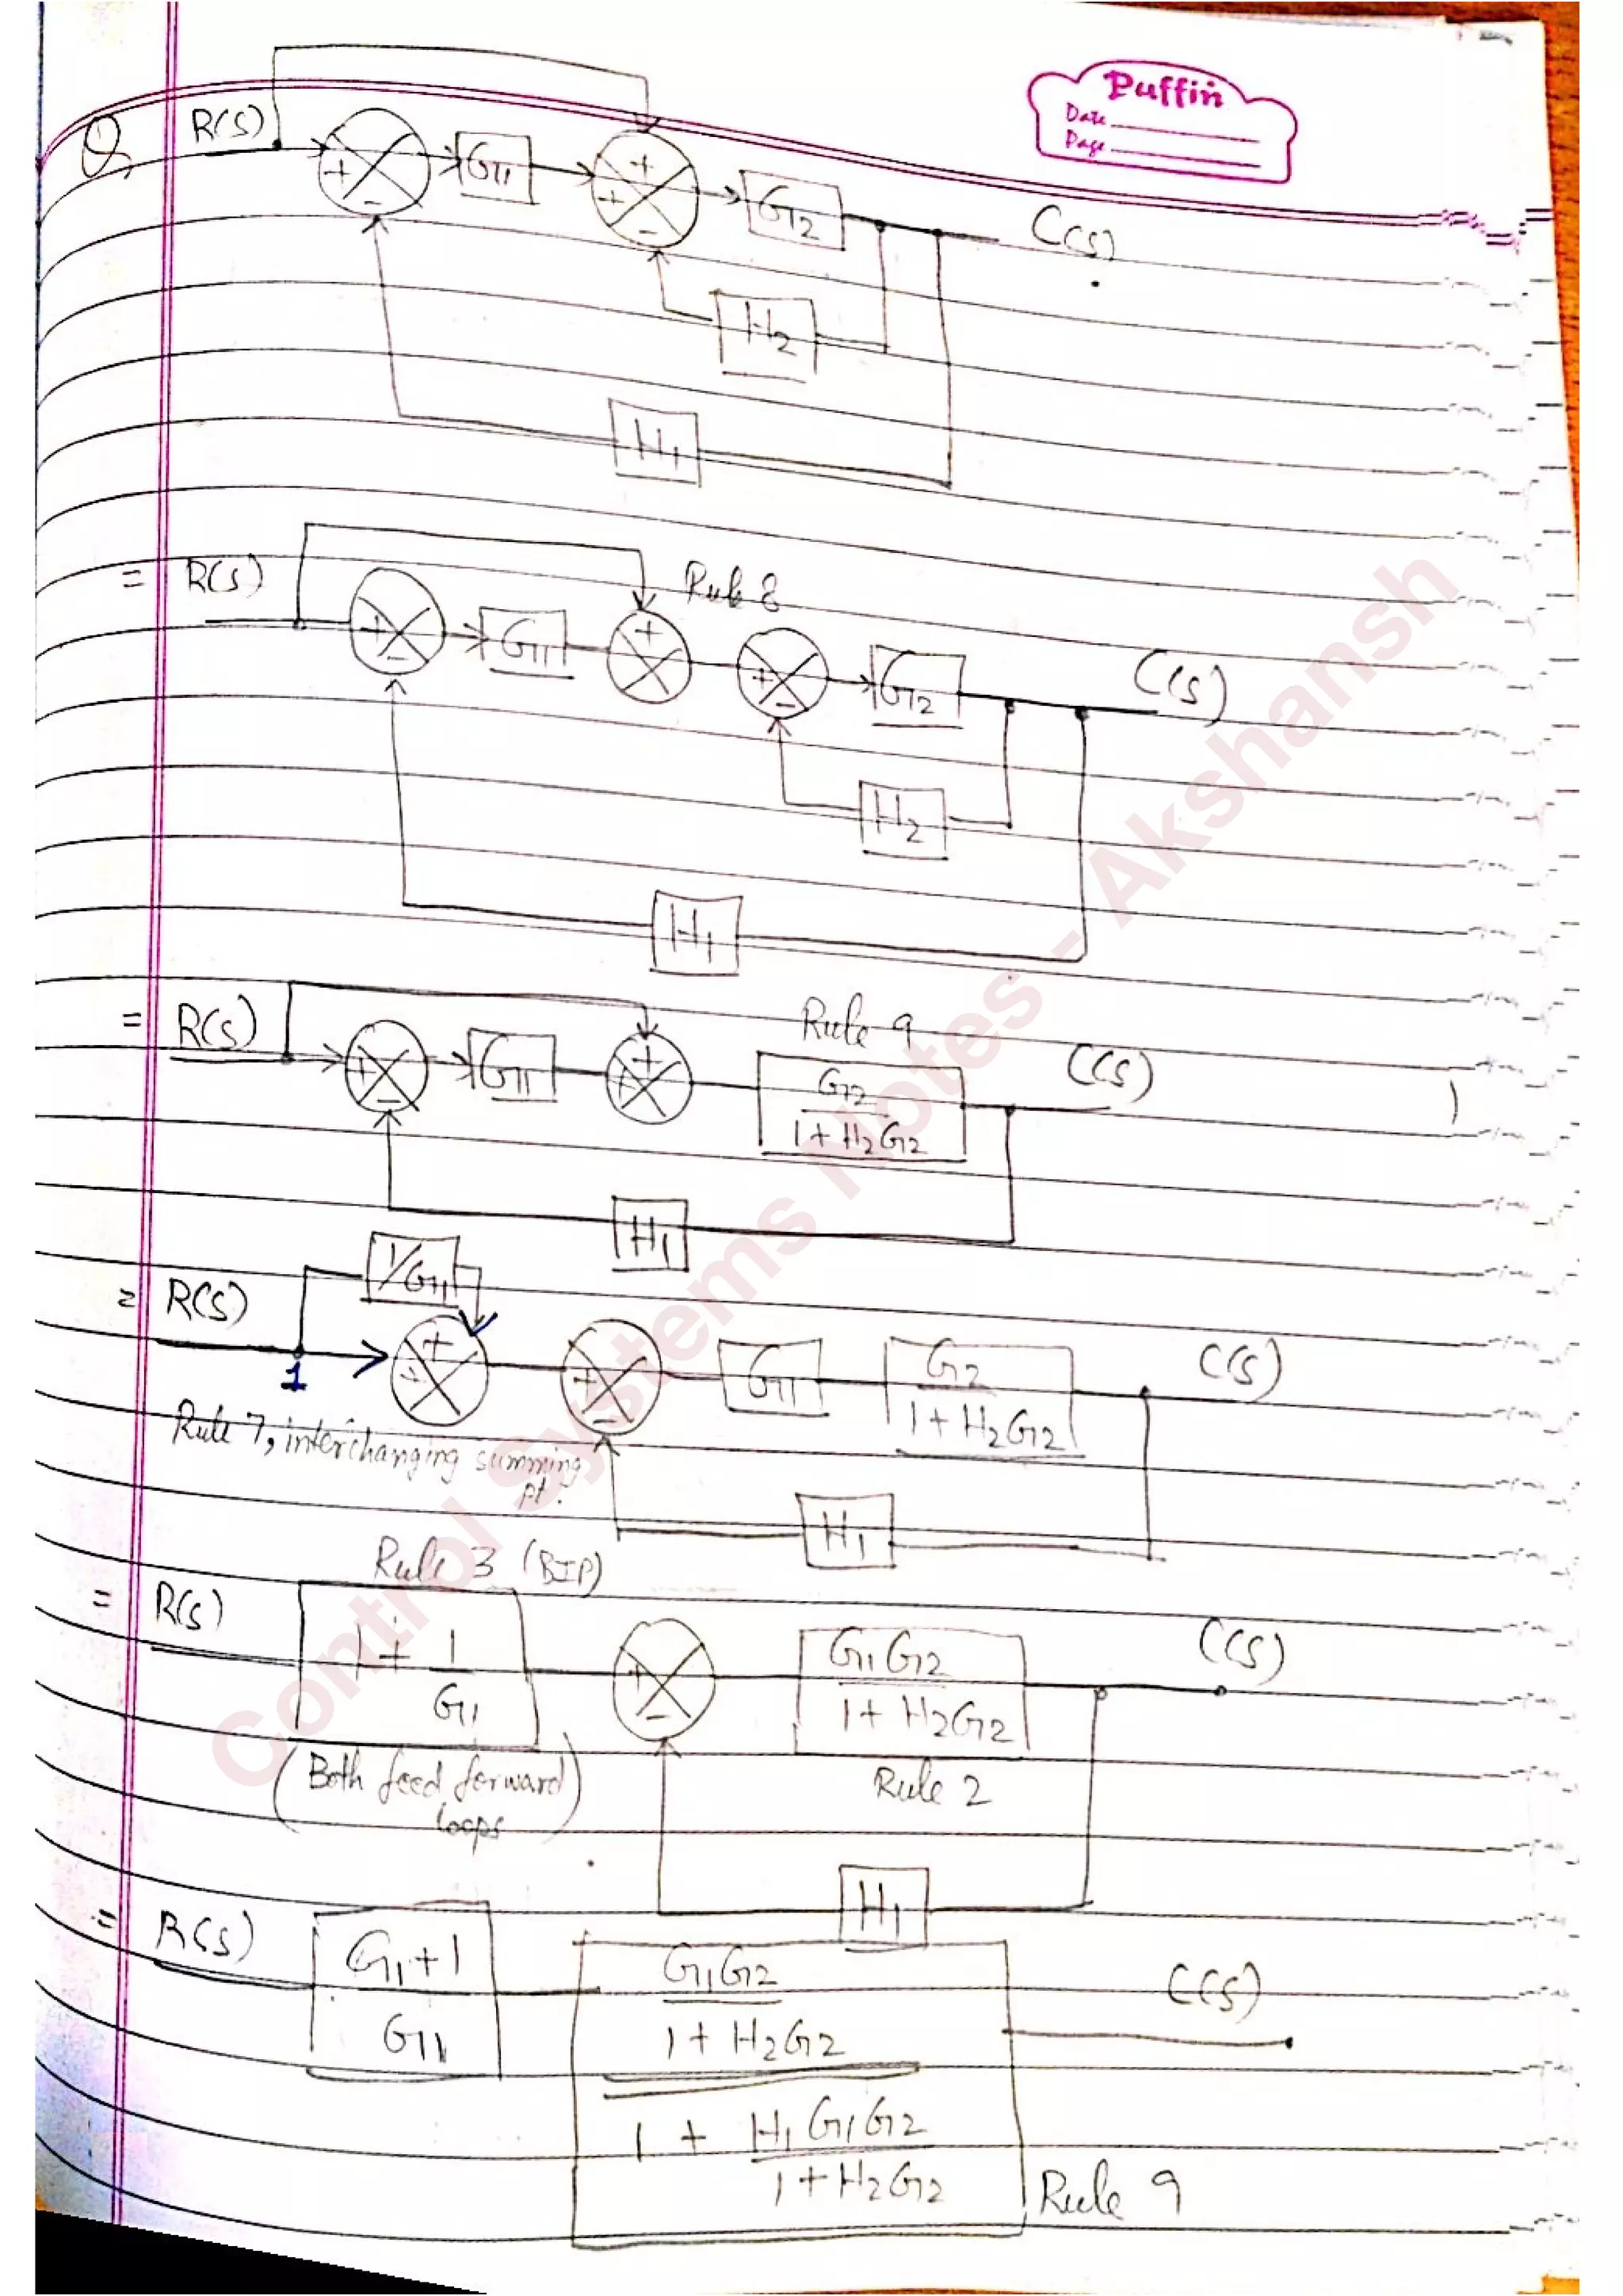 Puffin
Date
Page
Q, R(S) + - G1 + + - G2 C(S)
H2
H1
= R(S) Rule 8
+ - G1 + + + - G2 C(S)
H2
H1
= R(S) Rule 9
+ - G1 + + G2 / 1 + H2G2 C(S)
H1
1/G1
= R(S) + + + - G1 G2 / 1 + H2G2 C(S)
1
Rule 7, interchanging summing
pt.
H1
Rule 3 (BIP)
= R(S) 1 + 1/G1 + - G1G2 / 1 + H2G2 C(S)
(Both feed forward
loops)
Rule 2
H1
= R(S) G1+1 / G1 G1G2 / 1 + H2G2 C(S)
1 + H1G1G2 / 1 + H2G2
Rule 9
Control Systems Notes - Akshansh